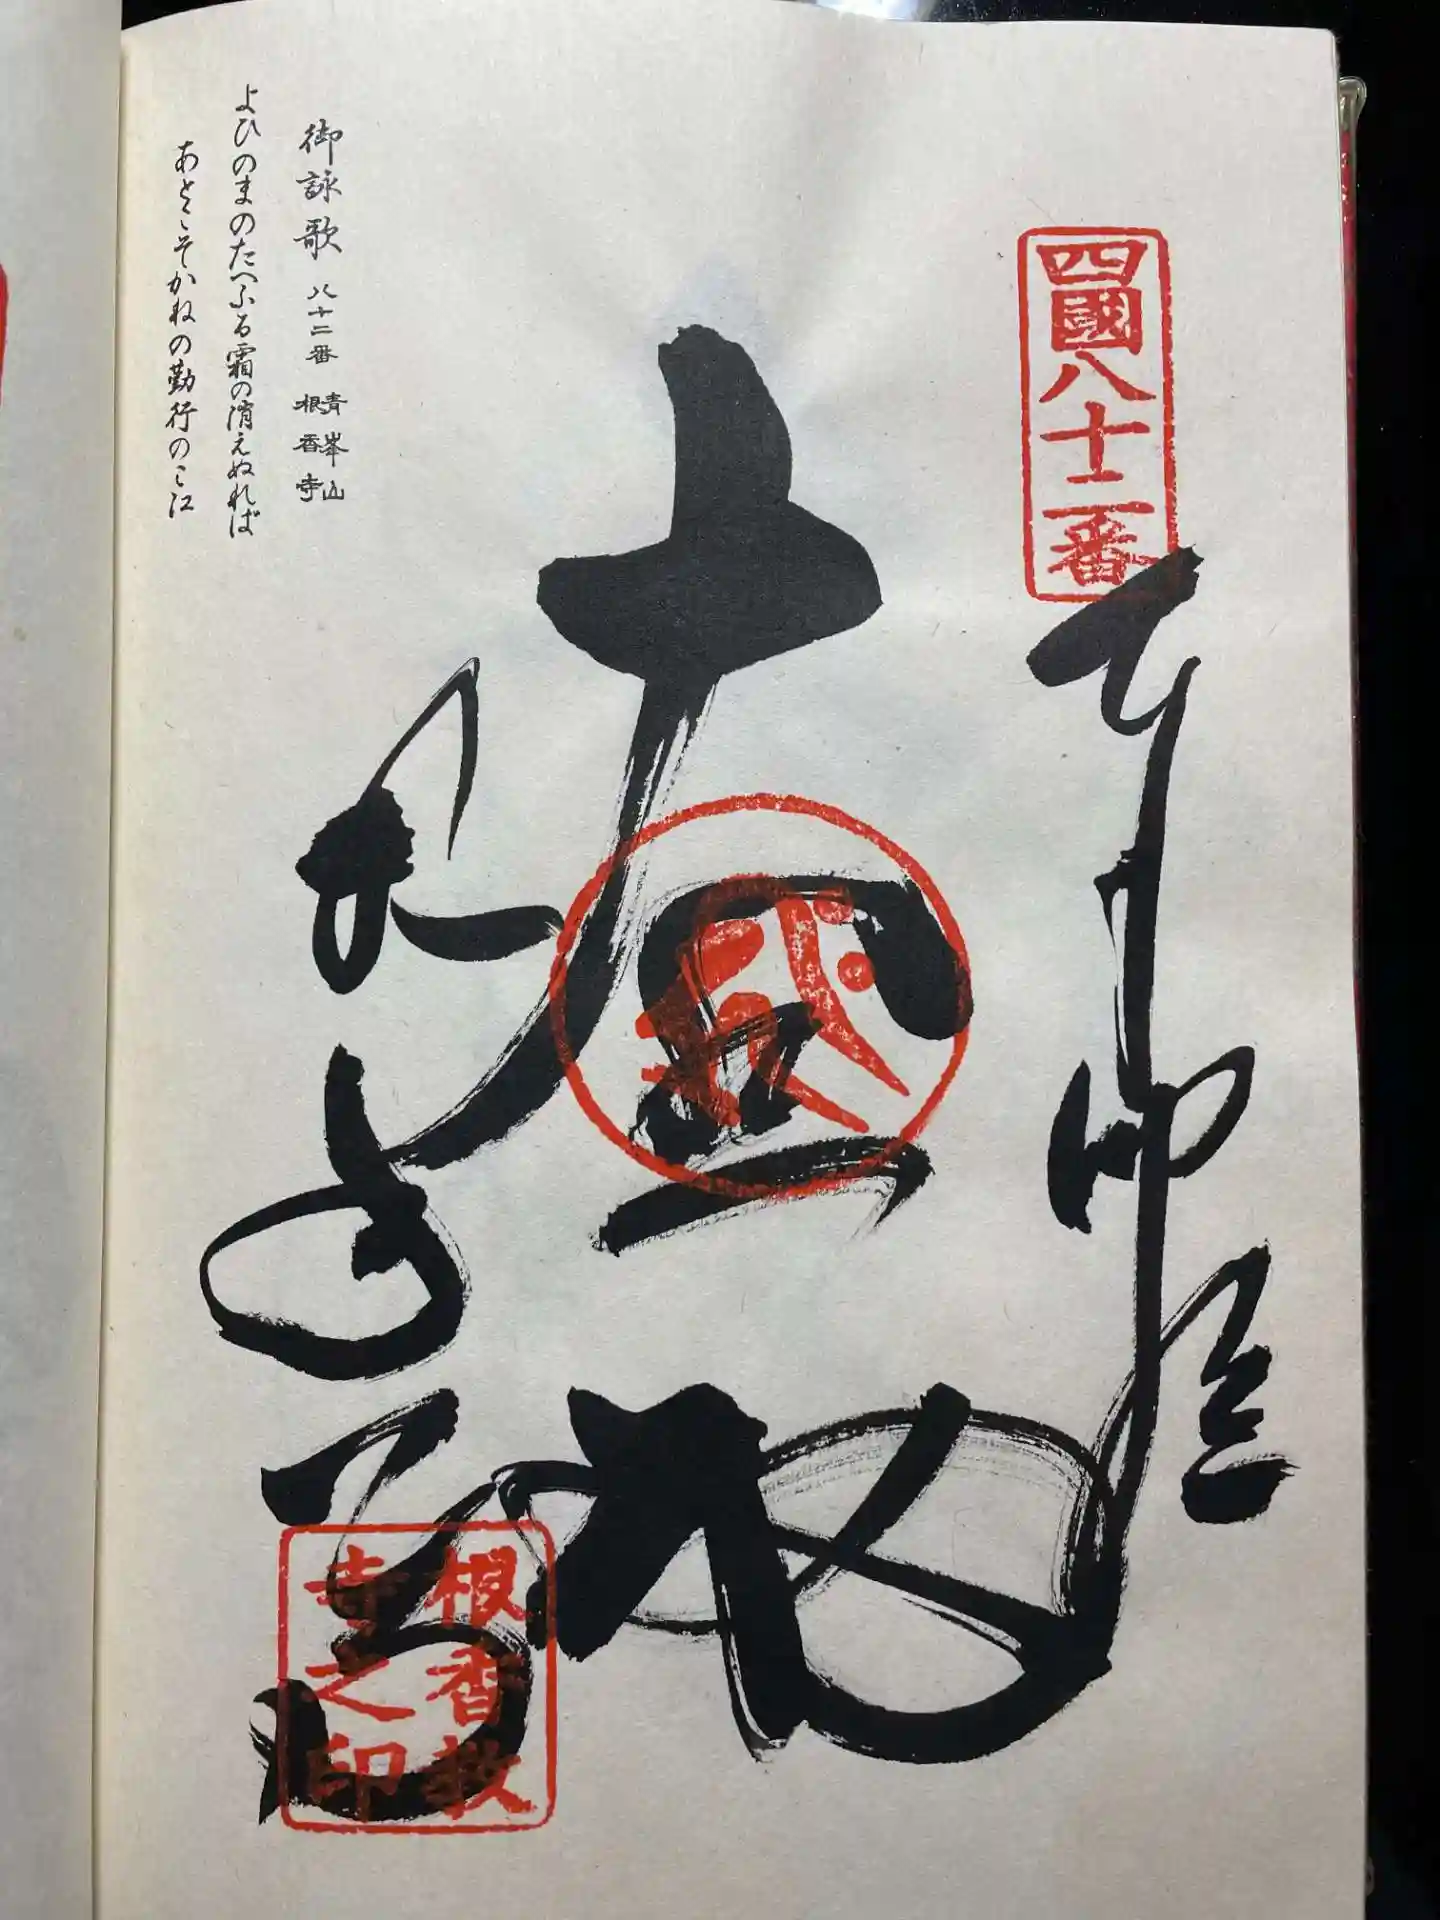 四國八十二番
根香寺
根香教
寺之印
御詠歌 八十二番 青峯山
根香寺
よひのまのたへふる霜の消えぬれば
あとゝそかねの勤行のこ江